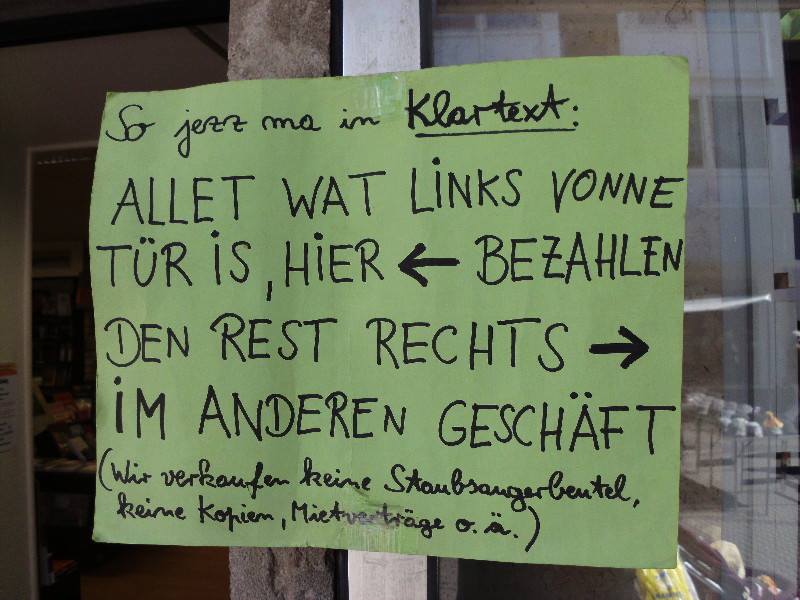 So jezz ma in Klartext:
ALLET WAT LINKS VONNE
TÜR IS, HIER ← BEZAHLEN
DEN REST RECHTS →
IM ANDEREN GESCHÄFT
(Wir verkaufen keine Staubsaugerbeutel,
keine Kopien, Mietverträge o.ä.)